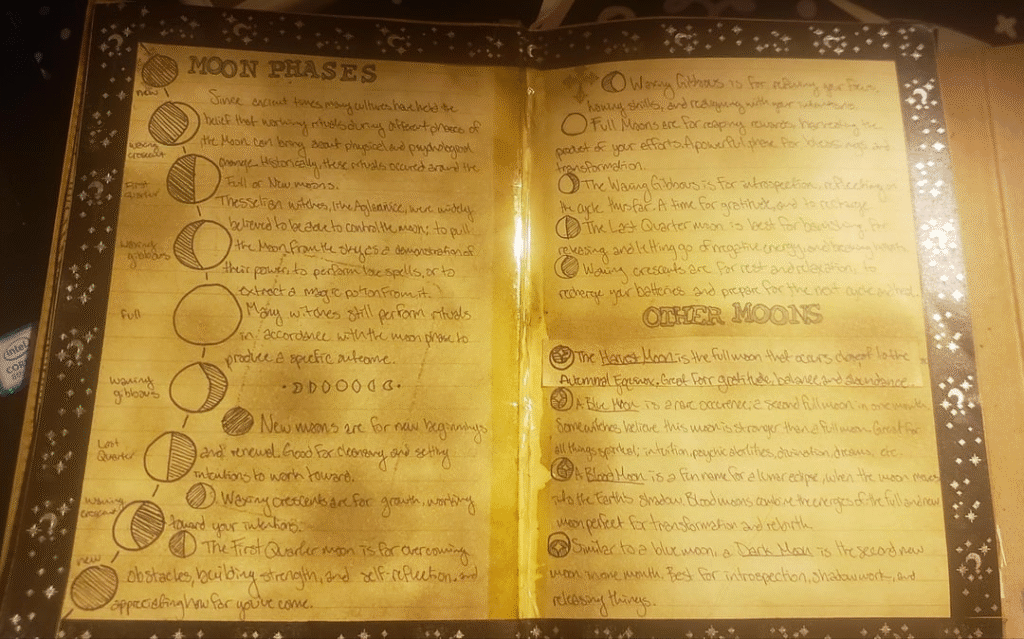 MOON PHASES
new
Since ancient times many cultures have held the
belief that working rituals during different phases of
the Moon can bring about physical and psychological
change. Historically, these rituals occured around the
Full or New moons.
Thesselian witches, like Aglaonice, were widely
believed to be able to control the moon; to pull
the Moon from the sky as a demonstration of
their power, to perform love spells, or to
extract a magic potion from it.
Many witches still perform rituals
in accordance with the moon phase to
produce a specific outcome.
waxing
crescent
First
quarter
waxing
gibbous
Full
waning
gibbous
Last
Quarter
waning
crescent
new
New moons are for new beginnings
and renewal. Good for cleansing and setting
intentions to work toward.
Waxing crescents are for growth, working
toward your intentions.
The First Quarter moon is for overcoming
obstacles, building strength, and self-reflection, and
appreciating how far you've come.
Waxing Gibbous is for refining your focus,
honing skills, and realigning with your intentions.
Full Moons are for reaping rewards, harvesting the
product of your efforts. A powerful phase for blessings and
transformation.
The Waning Gibbous is for introspection, reflecting on
the cycle thus far. A time for gratitude, and to recharge
The Last Quarter moon is best for banishing, for
releasing and letting go of negative energy, and breaking
Waning crescents are for rest and relaxation, to
recharge your batteries and prepare for the next cycle
OTHER MOONS
The Harvest Moon is the full moon that occurs closest to the
Autumnal Equinox, Great for gratitude, balance, and abundance.
A Blue Moon is a rare occurence, a second full moon in one month.
Some witches believe this moon is stronger than a full moon. Great for
all things spiritual; intuition, psychic abilities, divination, dreams, etc.
A Blood Moon is a fun name for a lunar eclipse, when the moon moves
into the Earth's shadow. Blood moons combine the energies of the full and new
moon perfect for transformation and rebirth.
Similar to a blue moon, a Dark Moon is the second new
moon in one month. Best for introspection, shadow work, and
releasing things.
intel
CORE